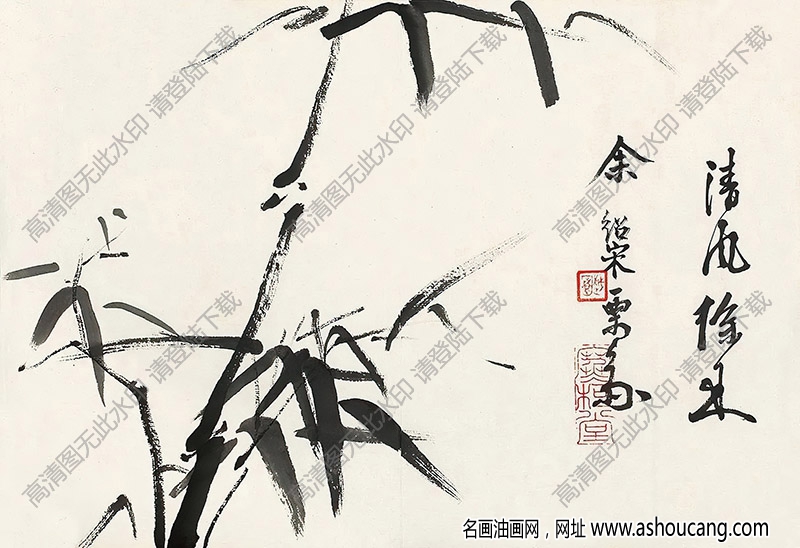 清風徐來
余紹宋
寒柯堂
高清图无此水印 请登陆下载
高清图无此水印 请登陆下载
高清图无此水印 请登陆下载
高清图无此水印 请登陆下载
高清图无此水印 请登陆下载
高清图无此水印 请登陆下载
名画油画网，网址 www.ashoucang.com